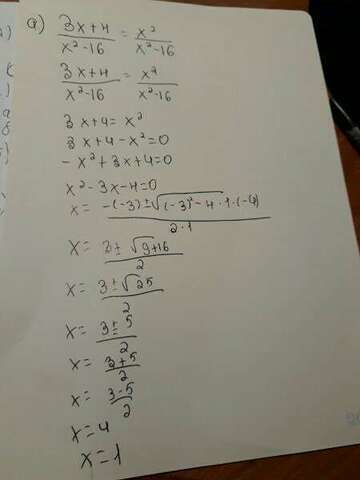 a) (3x+4)/(x²-16) = x²/(x²-16)
(3x+4)/(x²-16) = x²/(x²-16)
3x+4=x²
3x+4-x²=0
-x²+3x+4=0
x²-3x-4=0
x= (-(-3)±√((-3)²-4·1·(-4)))/(2·1)
x= (3±√(9+16))/2
x= (3±√25)/2
x= (3±5)/2
x= (3+5)/2
x= (3-5)/2
x=4
x=1